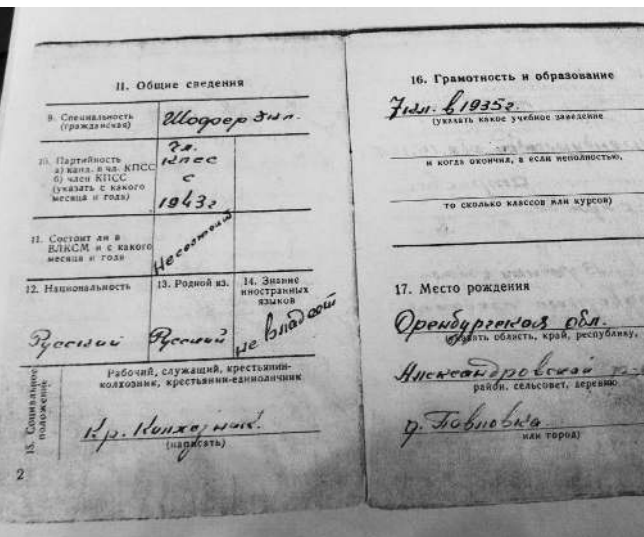 II. Общие сведения
9. Специальность
(гражданская)
Шофер 3 кл.
10. Партийность
а) канд. в чл. КПСС
б) член КПСС
(указать с какого
месяца и года)
чл.
КПСС
с
1943 г
11. Состоит ли в
ВЛКСМ и с какого
месяца и года
Несостоит
12. Национальность
Русский
13. Родной яз.
Русский
14. Знание
иностранных
языков
не владеет
15. Социальное
положение
Рабочий, служащий, крестьянин-
колхозник, крестьянин-единоличник
Кр. Колхозник.
(написать)
2
16. Грамотность и образование
7 кл. в 1935 г.
(указать какое учебное заведение
и когда окончил, а если неполностью,
то сколько классов или курсов)
17. Место рождения
Оренбургская обл.
(указать область, край, республику,
Александровский р-
район, сельсовет, деревню
д. Павловка
или город)